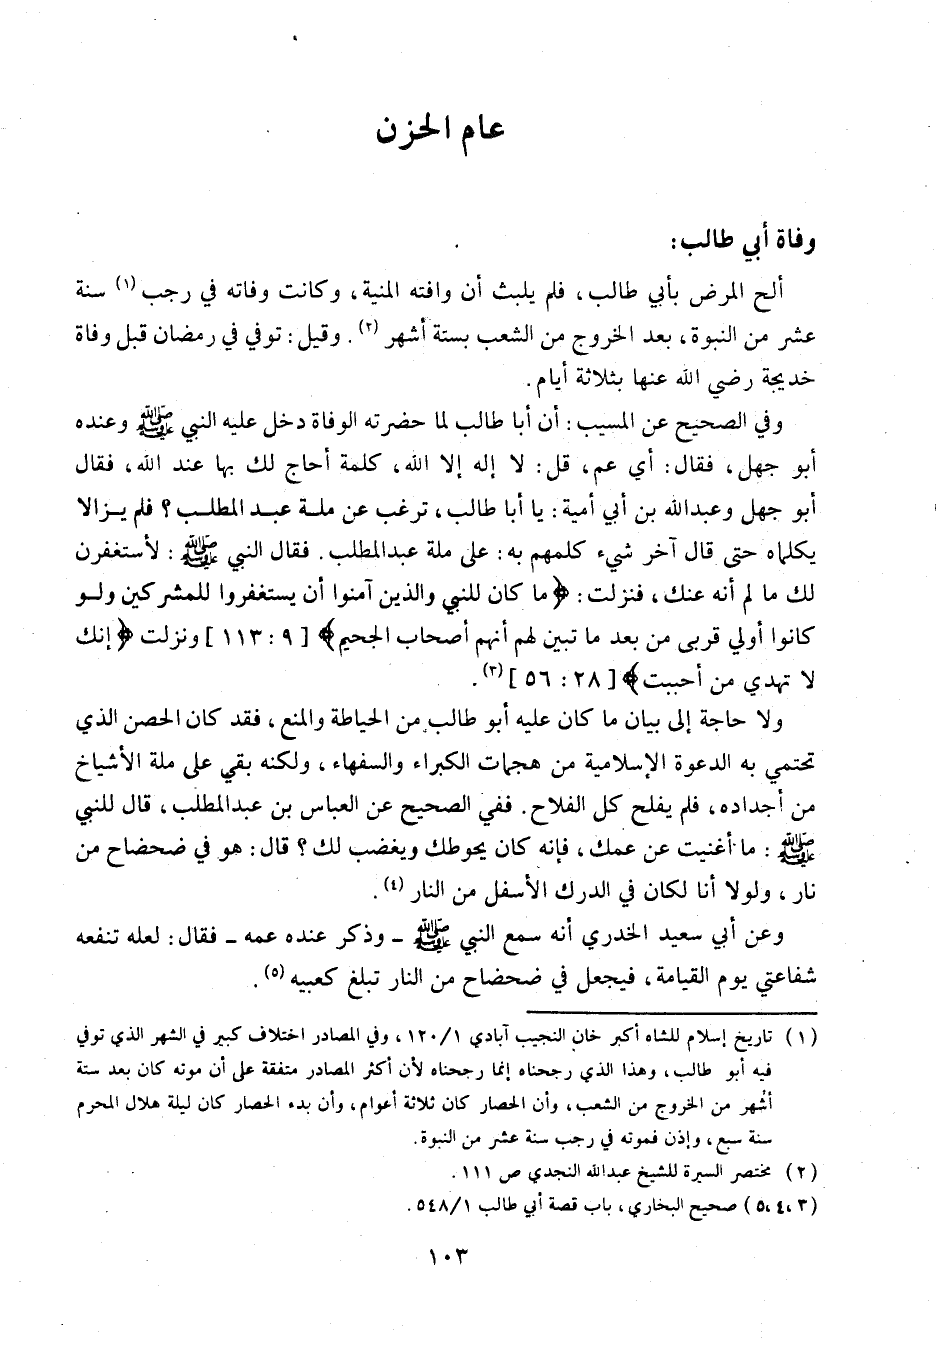 عام الحزن
وفاة أبي طالب:
ألح المرض بأبي طالب، فلم يلبث أن وافته المنية، وكانت وفاته في رجب (١) سنة
عشر من النبوة، بعد الخروج من الشعب بستة أشهر (٢). وقيل: توفي في رمضان قبل وفاة
خديجة رضي الله عنها بثلاثة أيام.
وفي الصحيح عن المسيب: أن أبا طالب لما حضرته الوفاة دخل عليه النبي ﷺ وعنده
أبو جهل، فقال: أي عم، قل: لا إله إلا الله، كلمة أحاج لك بها عند الله، فقال
أبو جهل وعبدالله بن أبي أمية: يا أبا طالب، ترغب عن ملة عبد المطلب؟ فلم يزالا
يكلماه حتى قال آخر شيء كلمهم به: على ملة عبدالمطلب. فقال النبي ﷺ: لأستغفرن
لك ما لم أنه عنك، فنزلت: ﴿ما كان للنبي والذين آمنوا أن يستغفروا للمشركين ولو
كانوا أولي قربى من بعد ما تبين لهم أنهم أصحاب الجحيم﴾ [٩: ١١٣] ونزلت ﴿إنك
لا تهدي من أحببت﴾ [٢٨: ٥٦] (٣).
ولا حاجة إلى بيان ما كان عليه أبو طالب من الحياطة والمنع، فقد كان الحصن الذي
تحتمي به الدعوة الإسلامية من هجمات الكبراء والسفهاء، ولكنه بقي على ملة الأشياخ
من أجداده، فلم يفلح كل الفلاح. ففي الصحيح عن العباس بن عبدالمطلب، قال للنبي
ﷺ: ما أغنيت عن عمك، فإنه كان يحوطك ويغضب لك؟ قال: هو في ضحضاح من
نار، ولولا أنا لكان في الدرك الأسفل من النار (٤).
وعن أبي سعيد الخدري أنه سمع النبي ﷺ ـ وذكر عنده عمه ـ فقال: لعله تنفعه
شفاعتي يوم القيامة، فيجعل في ضحضاح من النار تبلغ كعبيه (٥).
(١) تاريخ إسلام للشاه أكبر خان النجيب آبادي ١/ ١٢٠، وفي المصادر اختلاف كبير في الشهر الذي توفي
فيه أبو طالب، وهذا الذي رجحناه إنما رجحناه لأن أكثر المصادر متفقة على أن موته كان بعد ستة
أشهر من الخروج من الشعب، وأن الحصار كان ثلاثة أعوام، وأن بدء الحصار كان ليلة هلال المحرم
سنة سبع، وإذن فموته في رجب سنة عشر من النبوة.
(٢) مختصر السيرة للشيخ عبدالله النجدي ص ١١١.
(٣، ٤، ٥) صحيح البخاري، باب قصة أبي طالب ١/ ٥٤٨.
١٠٣